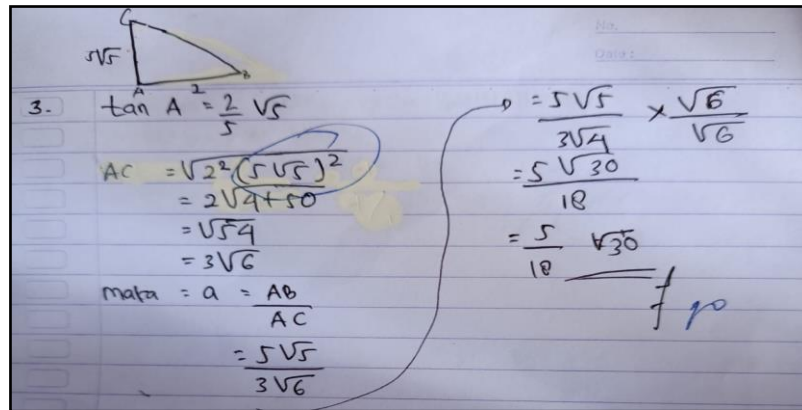 No.
Date:
C
5√5
A
B
2
3. tan A = 2/5 √5
AC = √2² (5√5)²
= 2√4+50
= √54
= 3√6
maka = a = AB/AC
= 5√5/3√6
= 5√5/3√4 × √6/√6
= 5√30/18
= 5/18 √30